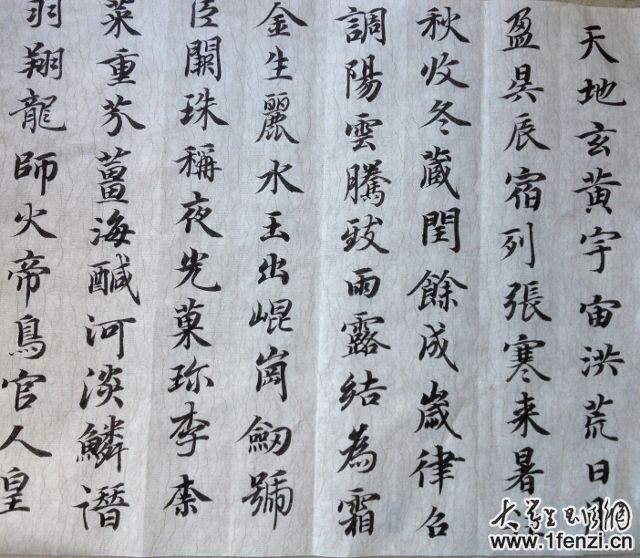 天地玄黃宇宙洪荒日月
盈昃辰宿列張寒来暑
秋收冬藏閏餘成歲律召
調陽雲騰致雨露結為霜
金生麗水玉出崐崗劒號
巨闕珠稱夜光菓珎李柰
菜重芥薑海鹹河淡鱗潛
羽翔龍師火帝鳥官人皇
大学生书法网
www.1fenzi.cn